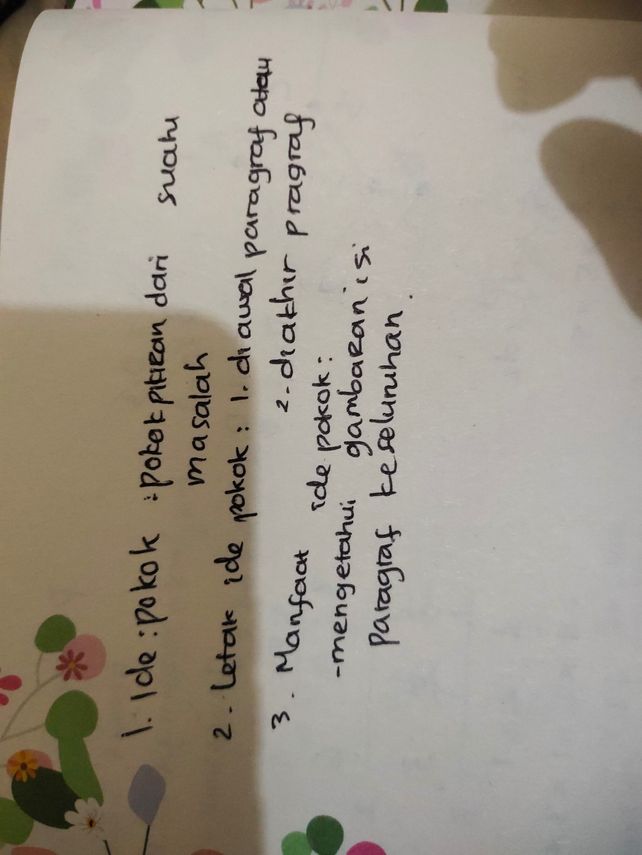 1. Ide : pokok : pokok pikiran dari suatu
masalah
2. Letak ide pokok : 1. di awal paragraf atau
2. diakhir pragraf
3. Manfaat ide pokok :
-mengetahui gambaran isi
paragraf keseluruhan.